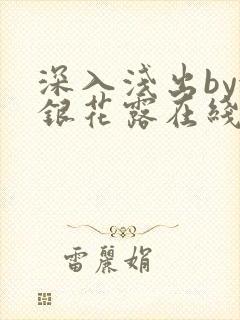 深入浅出by
銀花露在綫
雷麗娟